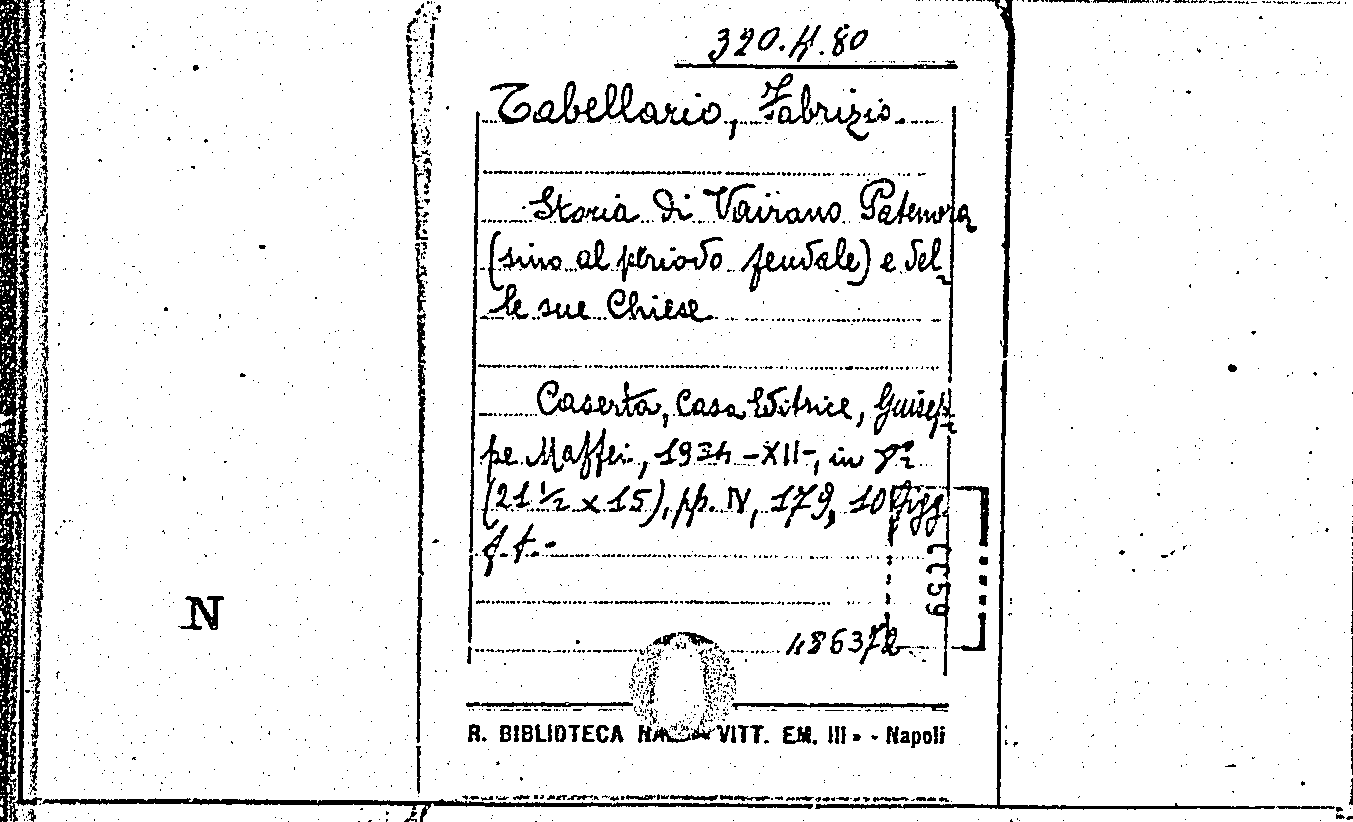 320.H.80
Tabellario, Fabrizio.
Storia di Vairano Patenora
(sino al periodo feudale) e del-
le sue Chiese
Caserta, Casa Editrice, Guisep-
pe Maffei, 1934 -XII-, in 8º
(21 ½ x 15), pp. IV, 179, 10 figg.
f.t.-
N
486372
R. BIBLIOTECA VITT. EM. III - Napoli